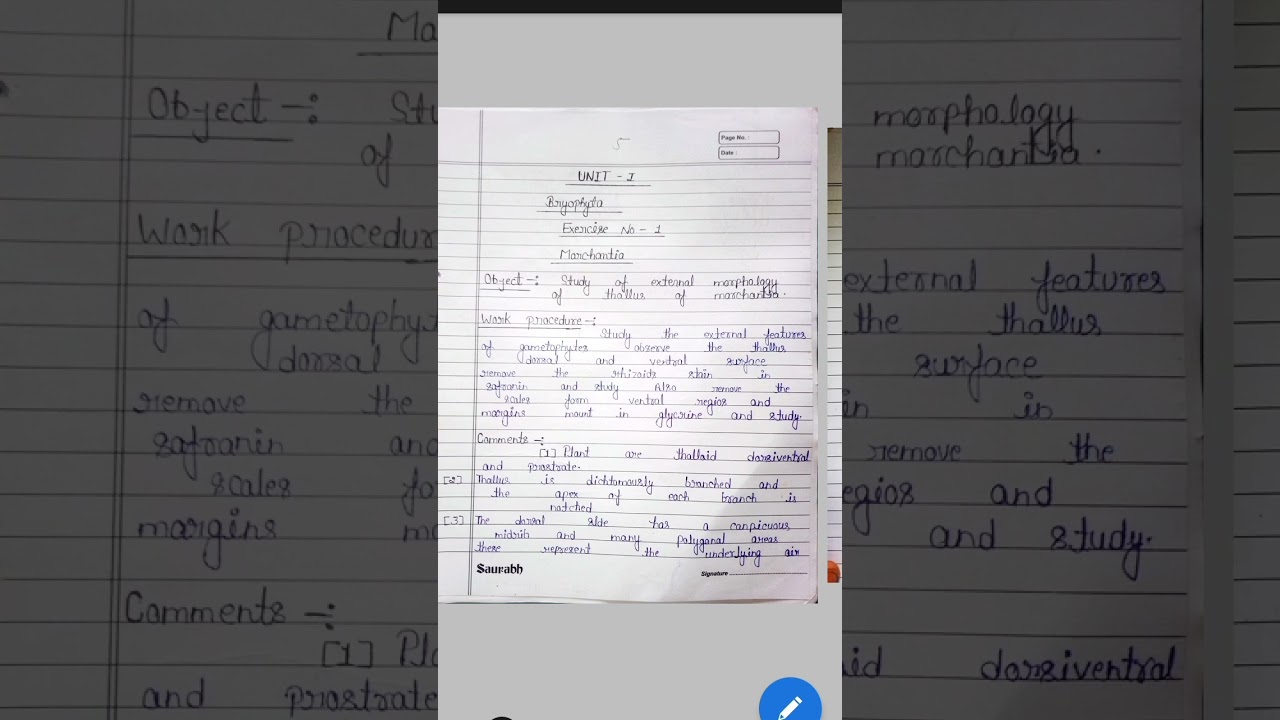 5
Page No. :
Date :
UNIT - I
Bryophyta
Exercise No - 1
Marchantia
Object -: Study of external morphology
of thallus of marchantia.
Work procedure -:
Study the external features
of gametophytes observe the thallus
dorsal and ventral surface
remove the rhizoids stain in
safranin and study Also remove the
scales form ventral regios and
margins mount in glycerine and study.
Comments -:
[1] Plant are thalloid dorsiventral
and prostrate.
[2] Thallus is dichtomously branched and
the apex of each branch is
notched
[3] The dorsal side has a canpicuous
midrib and many polygonal areas
these represent the underlying air
Saurabh
Signature